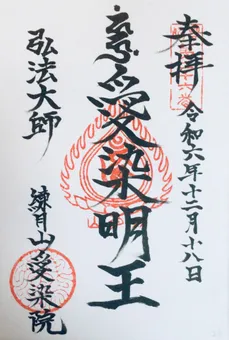 奉拝
令和六年十二月十八日
愛染明王
弘法大師
練月山愛染院